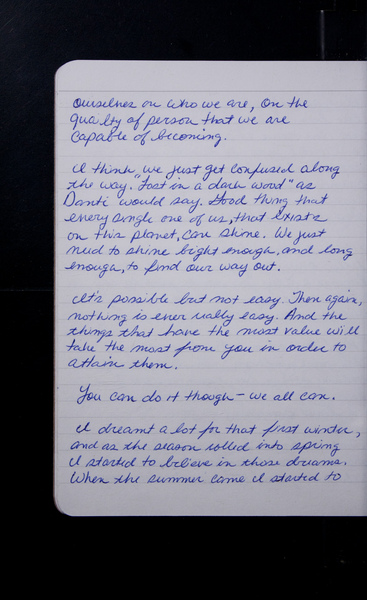 ourselves on who we are, on the
quality of person that we are
capable of becoming.
I think we just get confused along
the way. "Lost in a dark wood" as
Danti would say. Good thing that
every single one of us, that exists
on this planet, can shine. We just
need to shine bright enough, and long
enough, to find our way out.
It's possible but not easy. Then again,
nothing is ever really easy. And the
things that have the most value will
take the most from you in order to
attain them.
You can do it though - we all can.
I dreamt a lot for that first winter,
and as the season rolled into spring
I started to believe in those dreams.
When the summer came I started to